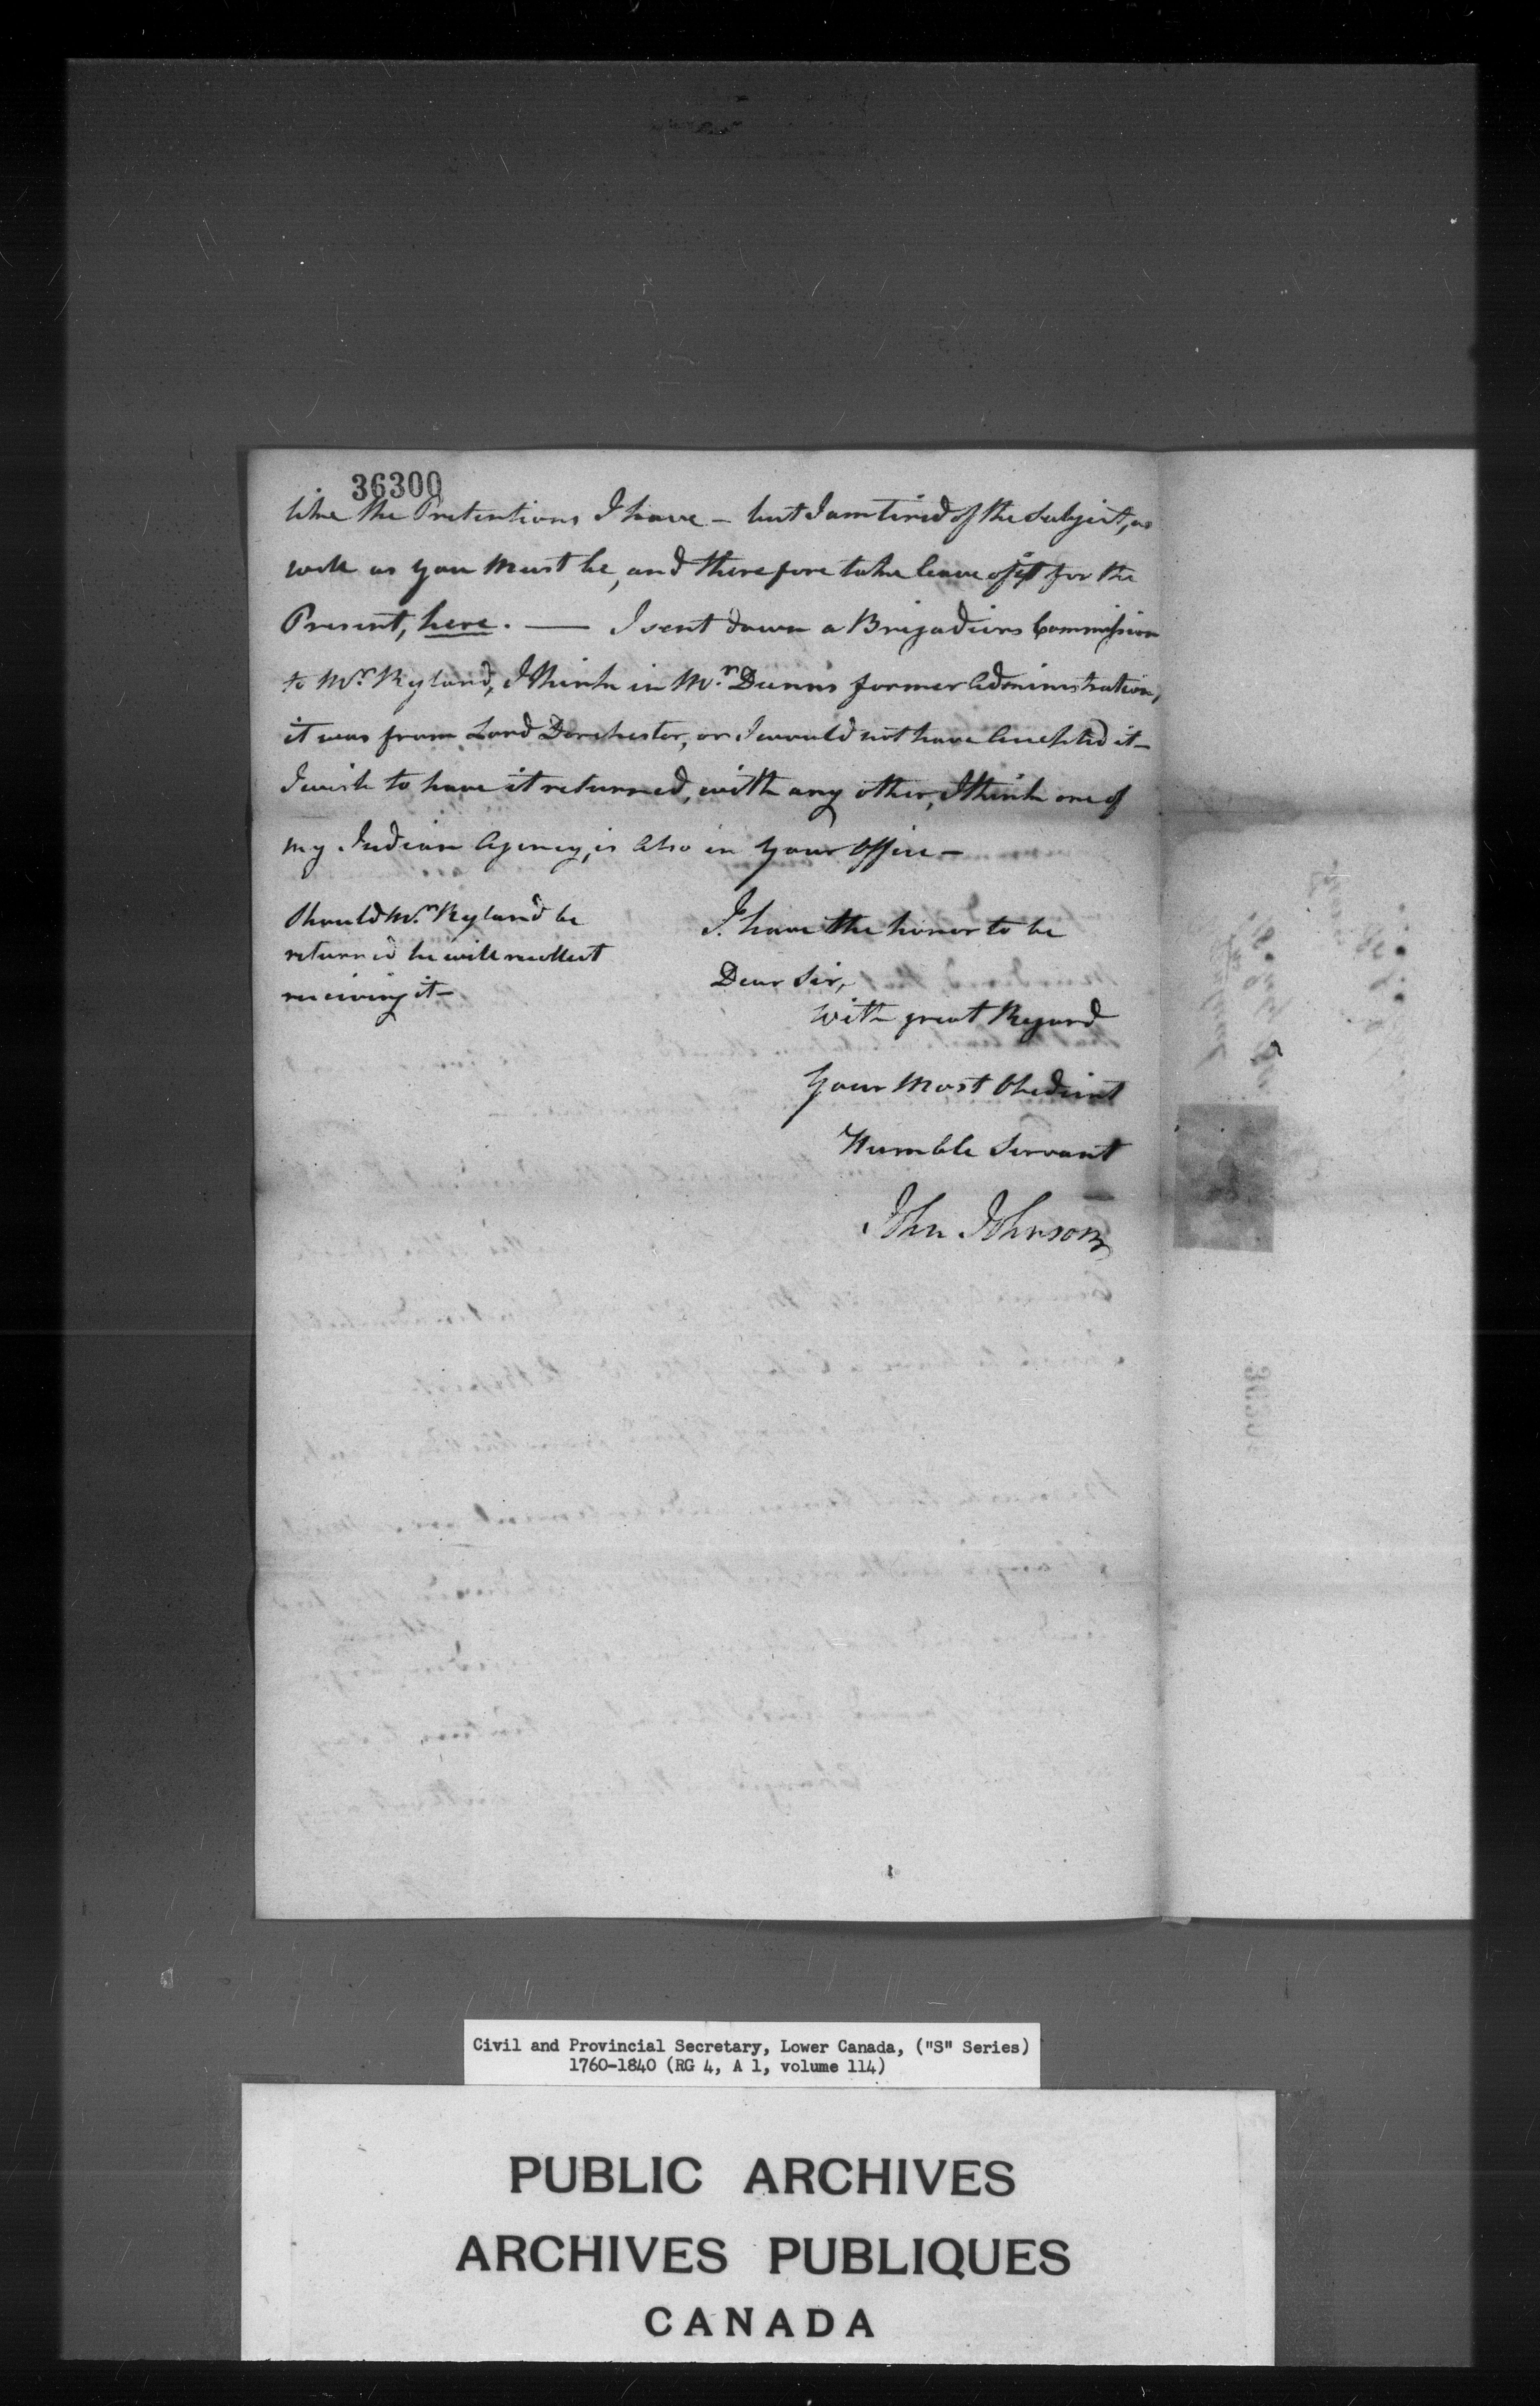 36300
like the Pretentions I have – but I am tired of the Subject, as
well as you Must be, and therefore take leave of it for the
Present, here. — I sent down a Brigadiers Commission
to Mr. Ryland, I think in Mr. Dunns former Administration,
it was from Lord Dorchester, or I would not have Accepted it –
I wish to have it returned, with any other, I think one of
my Indian Agency, is Also in Your Office –
Should Mr. Ryland be
returned he will recollect
receiving it –
I have the honor to be
Dear Sir,
With great Regard
Your Most Obedient
Humble Servant
John Johnson
Civil and Provincial Secretary, Lower Canada, ("S" Series)
1760-1840 (RG 4, A 1, volume 114)
PUBLIC ARCHIVES
ARCHIVES PUBLIQUES
CANADA